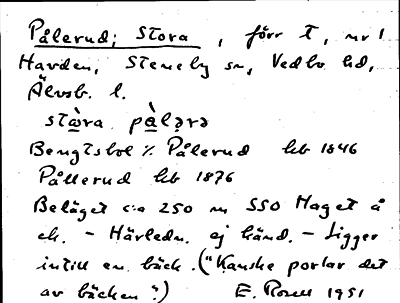 Pålerud; Stora, förr t, nr 1
Havden, Steneby sn, Vedbo hd,
Älvsb. l.
stɷ̀ra pàlərə
Bengtsbol % Pålerud hb 1846
Pållerud hb 1876
Beläget c:a 250 m SSO Haget å
ek. - Härledn. ej känd. - Ligger
intill en bäck. ("Kanske porlar det
av bäcken".) E. Rosell 1951